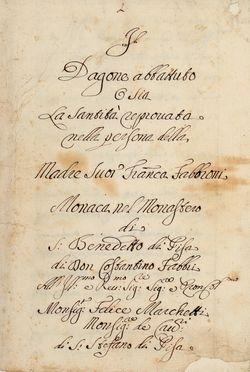 Il
Dagone abbattuto
O sia
La Santità reprovata
nella persona della
Madre Suor Franca Fabbroni
Monaca nel Monastero
di
S: Benedetto di Pisa
di Don Costantino Fabbri
All' Ill.mo e Rev: Sig: Sig:e
Monsig: Felice Marchetti
Monsig:
di S: Stefano di Pisa.